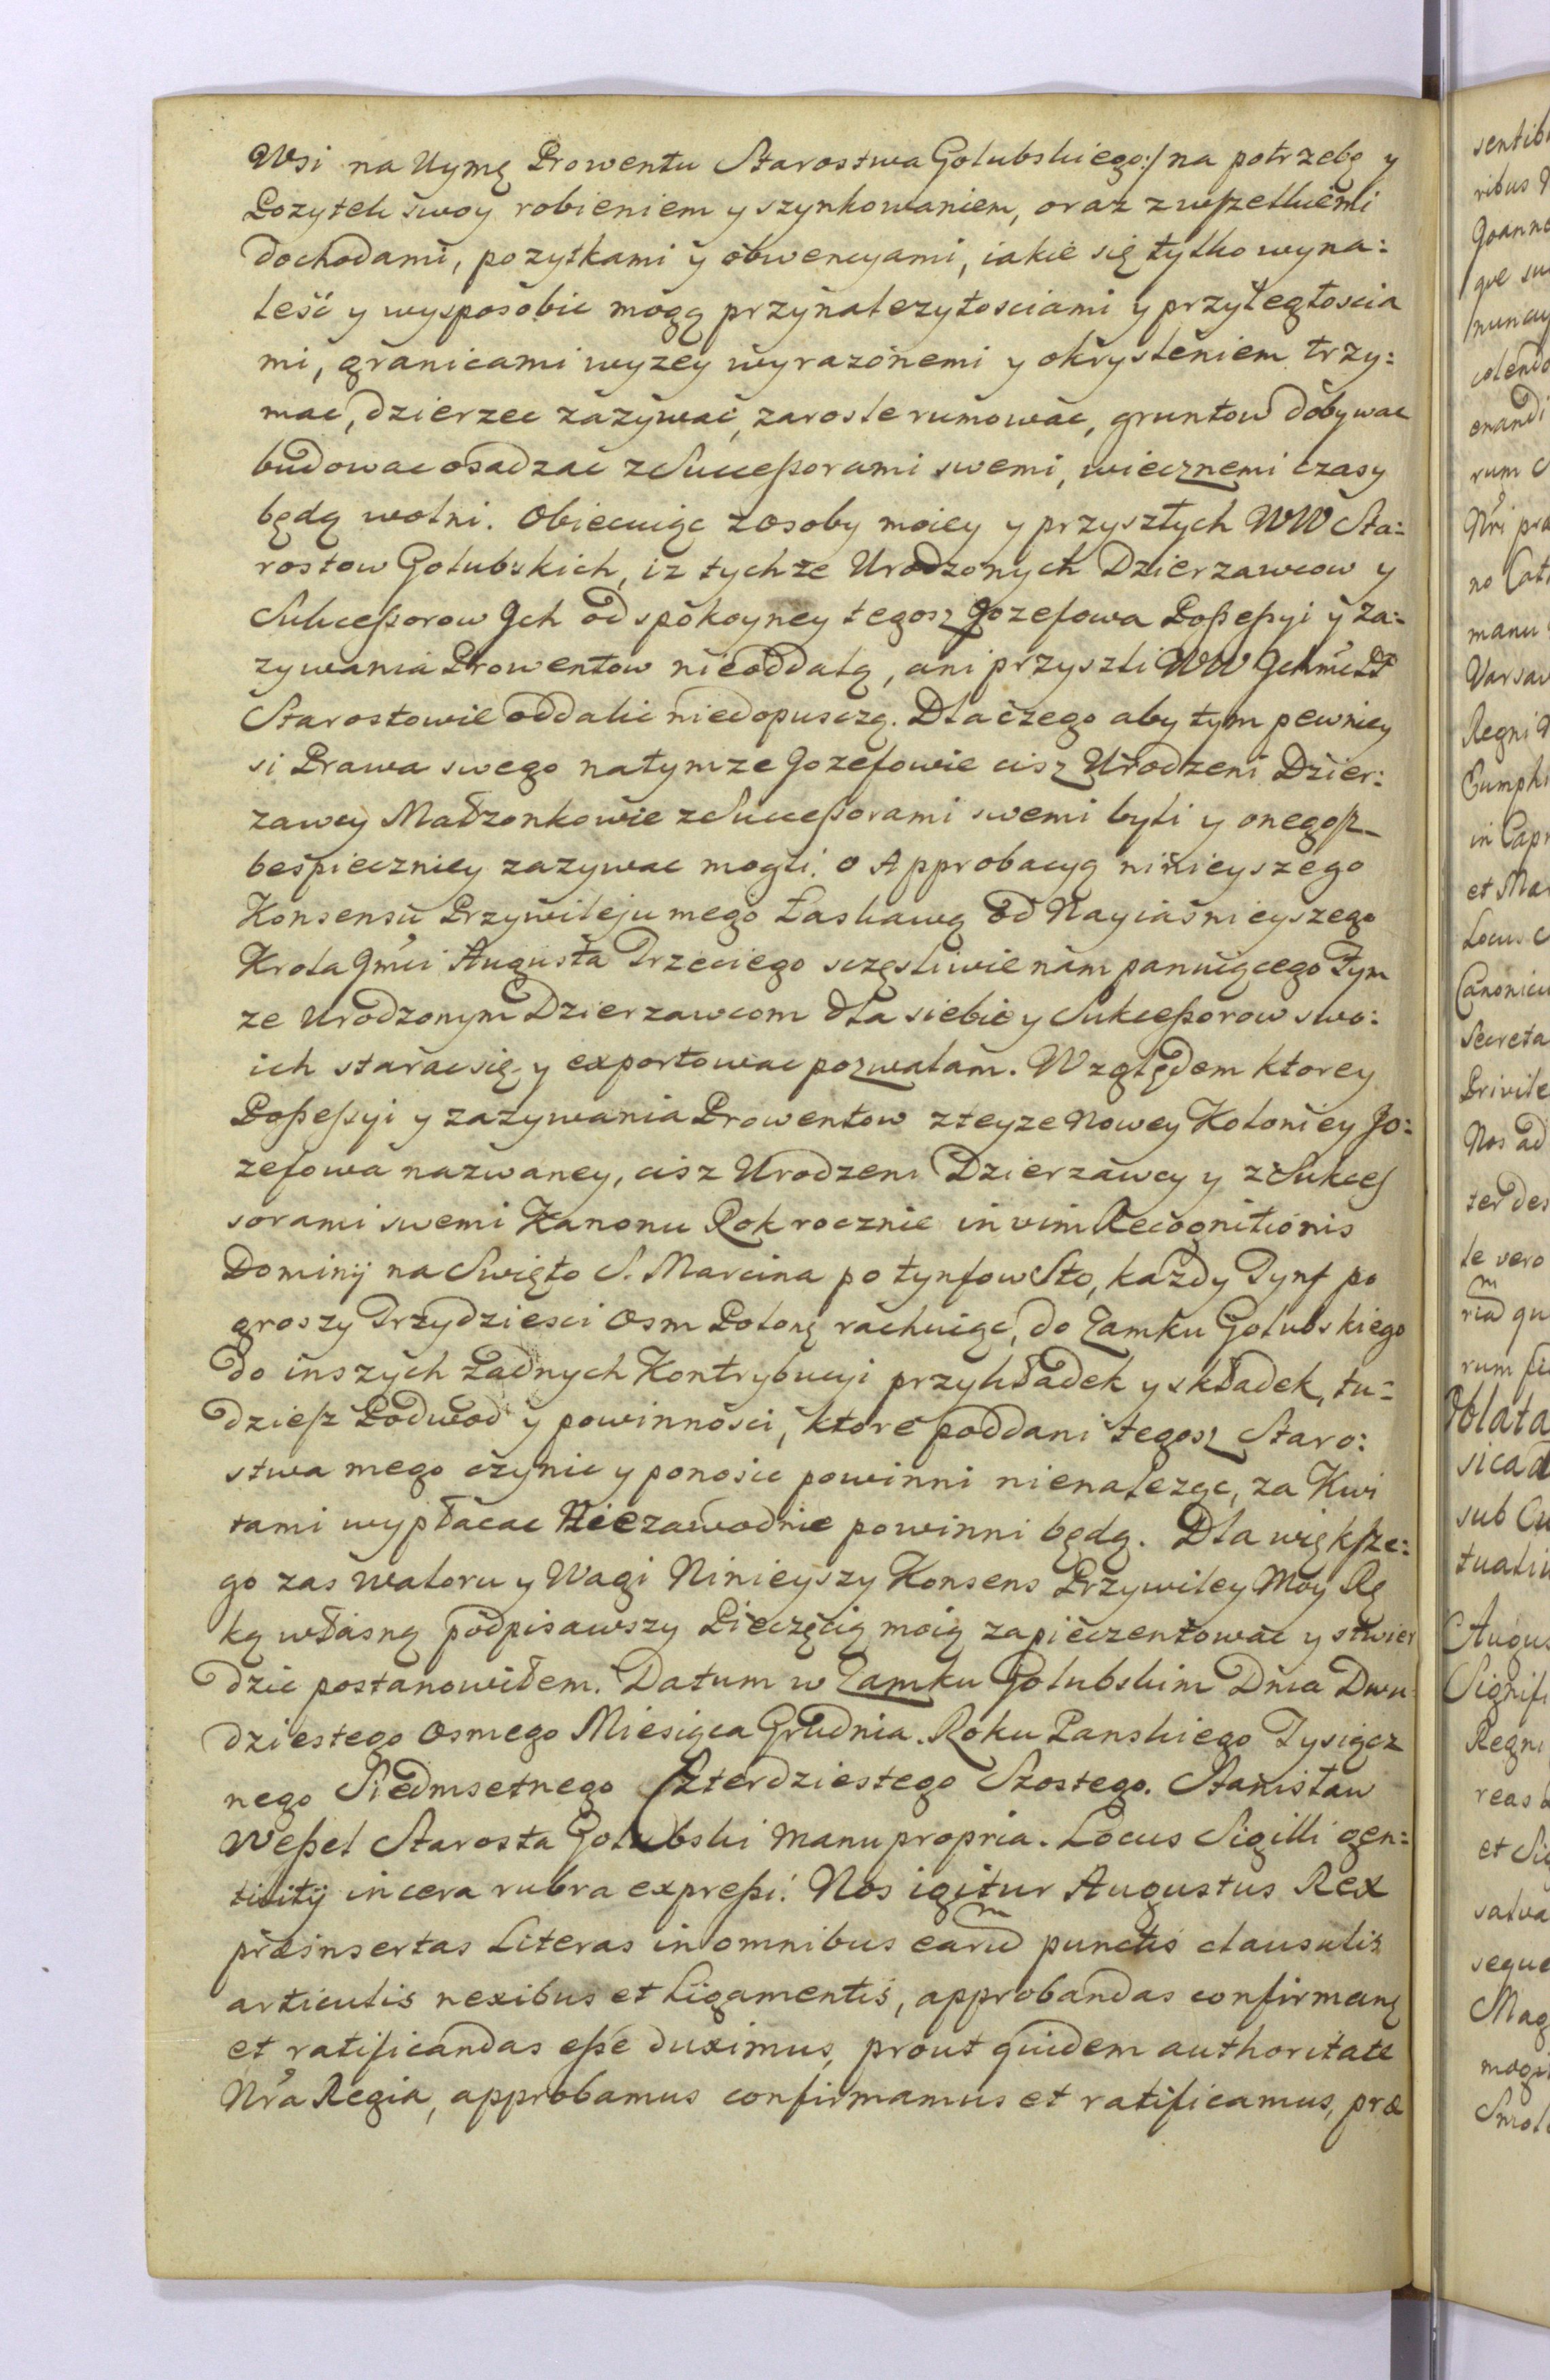 Wsi na Uymę Prowentu Starostwa Golubskiego:/ na potrzebę y
Pozytek swoy robieniem y szynkowaniem, oraz zwszelkiemi
dochodami, pozytkami y obwencyami, iakie się tylko wyna:
leść y wysposobic mogą przynalezytosciami y przyległoscia
mi, granicami wyzey wyrazonemi y okrysleniem trzy:
mac, dzierzec zazywać, zarosle rumowac, gruntow dobywac
budowac osadzac z Successorami swemi, wiecznemi czasy
będą wolni. Obiecuiąc zosoby moiey y przyszłych WW Sta:
rostow Golubskich, iz tychze Urodzonych Dzierzawcow y
Sukcessorow Jch od spokoyney tegosz Jozefowa Possessyi y za:
zywania Prowentow nieoddalą, ani przyszli WW Jchmć PP
Starostowie oddalic niedopuszczą. Dlaczego aby tym pewniey
si Prawa swego natymze Jozefowie cisz Urodzeni Dzier:
zawcy Małzonkowie z Successorami swemi byli y onegosz
bespieczniey zazywac mogli. o Approbacyą ninieyszego
Konsensu Przywileju mego Łaskawą od Nayiasnieyszego
Krola Jmci Augusta Trzeciego sczęsliwie nam panuiącego Tym
ze Urodzonym Dzierzawcom dla siebie y Sukcessorow swo:
ich starac się y exportowac pozwalam. Względem ktorey
Possessyi y zazywania Prowentow zteyze Nowey Koloniey Jo:
zefowa nazwaney, cisz Urodzeni Dzierzawcy y z Sukces
sorami swemi Kanonu Rok rocznie in vim Recognitionis
Dominij na Swięto S. Marcina po tynfow Sto, kazdy Tynf po
groszy Trzydziesci Osm Polonę rachuiąc, do Zamku Golubskiego
do inszych Zadnych Kontrybucyi przykładek y składek, tu:
dziesz Podwod y powinnosci, ktore poddani tegosz Staro:
stwa mego czynic y ponosic powinni nienaleząc, za Kwi
tami wypłacac Niezawodnie powinni będą. Dla większe:
go zas waloru y Wagi Ninieyszy Konsens Przywiley Moy Rę
ką własną podpisawszy Pieczęcią moią zapieczentowac y stwier
dzic postanowiłem. Datum w Zamku Golubskim Dnia Dwu
dziestego Osmego Miesiąca Grudnia. Roku Panskiego Tysiącz
nego Siedmsetnego Szterdziestego Szostego. Stanisław
Wessel Starosta Golubski manu propria. Locus Sigilli gen:
tilitij in cera rubra expressi. Nos igitur Augustus Rex
præinsertas Literas in omnibus earum punctis clausulis
articulis nexibus et Ligamentis, approbandas confirmanę
et ratificandas esse duximus, prout quidem authoritate
Nra Regia, approbamus confirmamus et ratificamus, præ